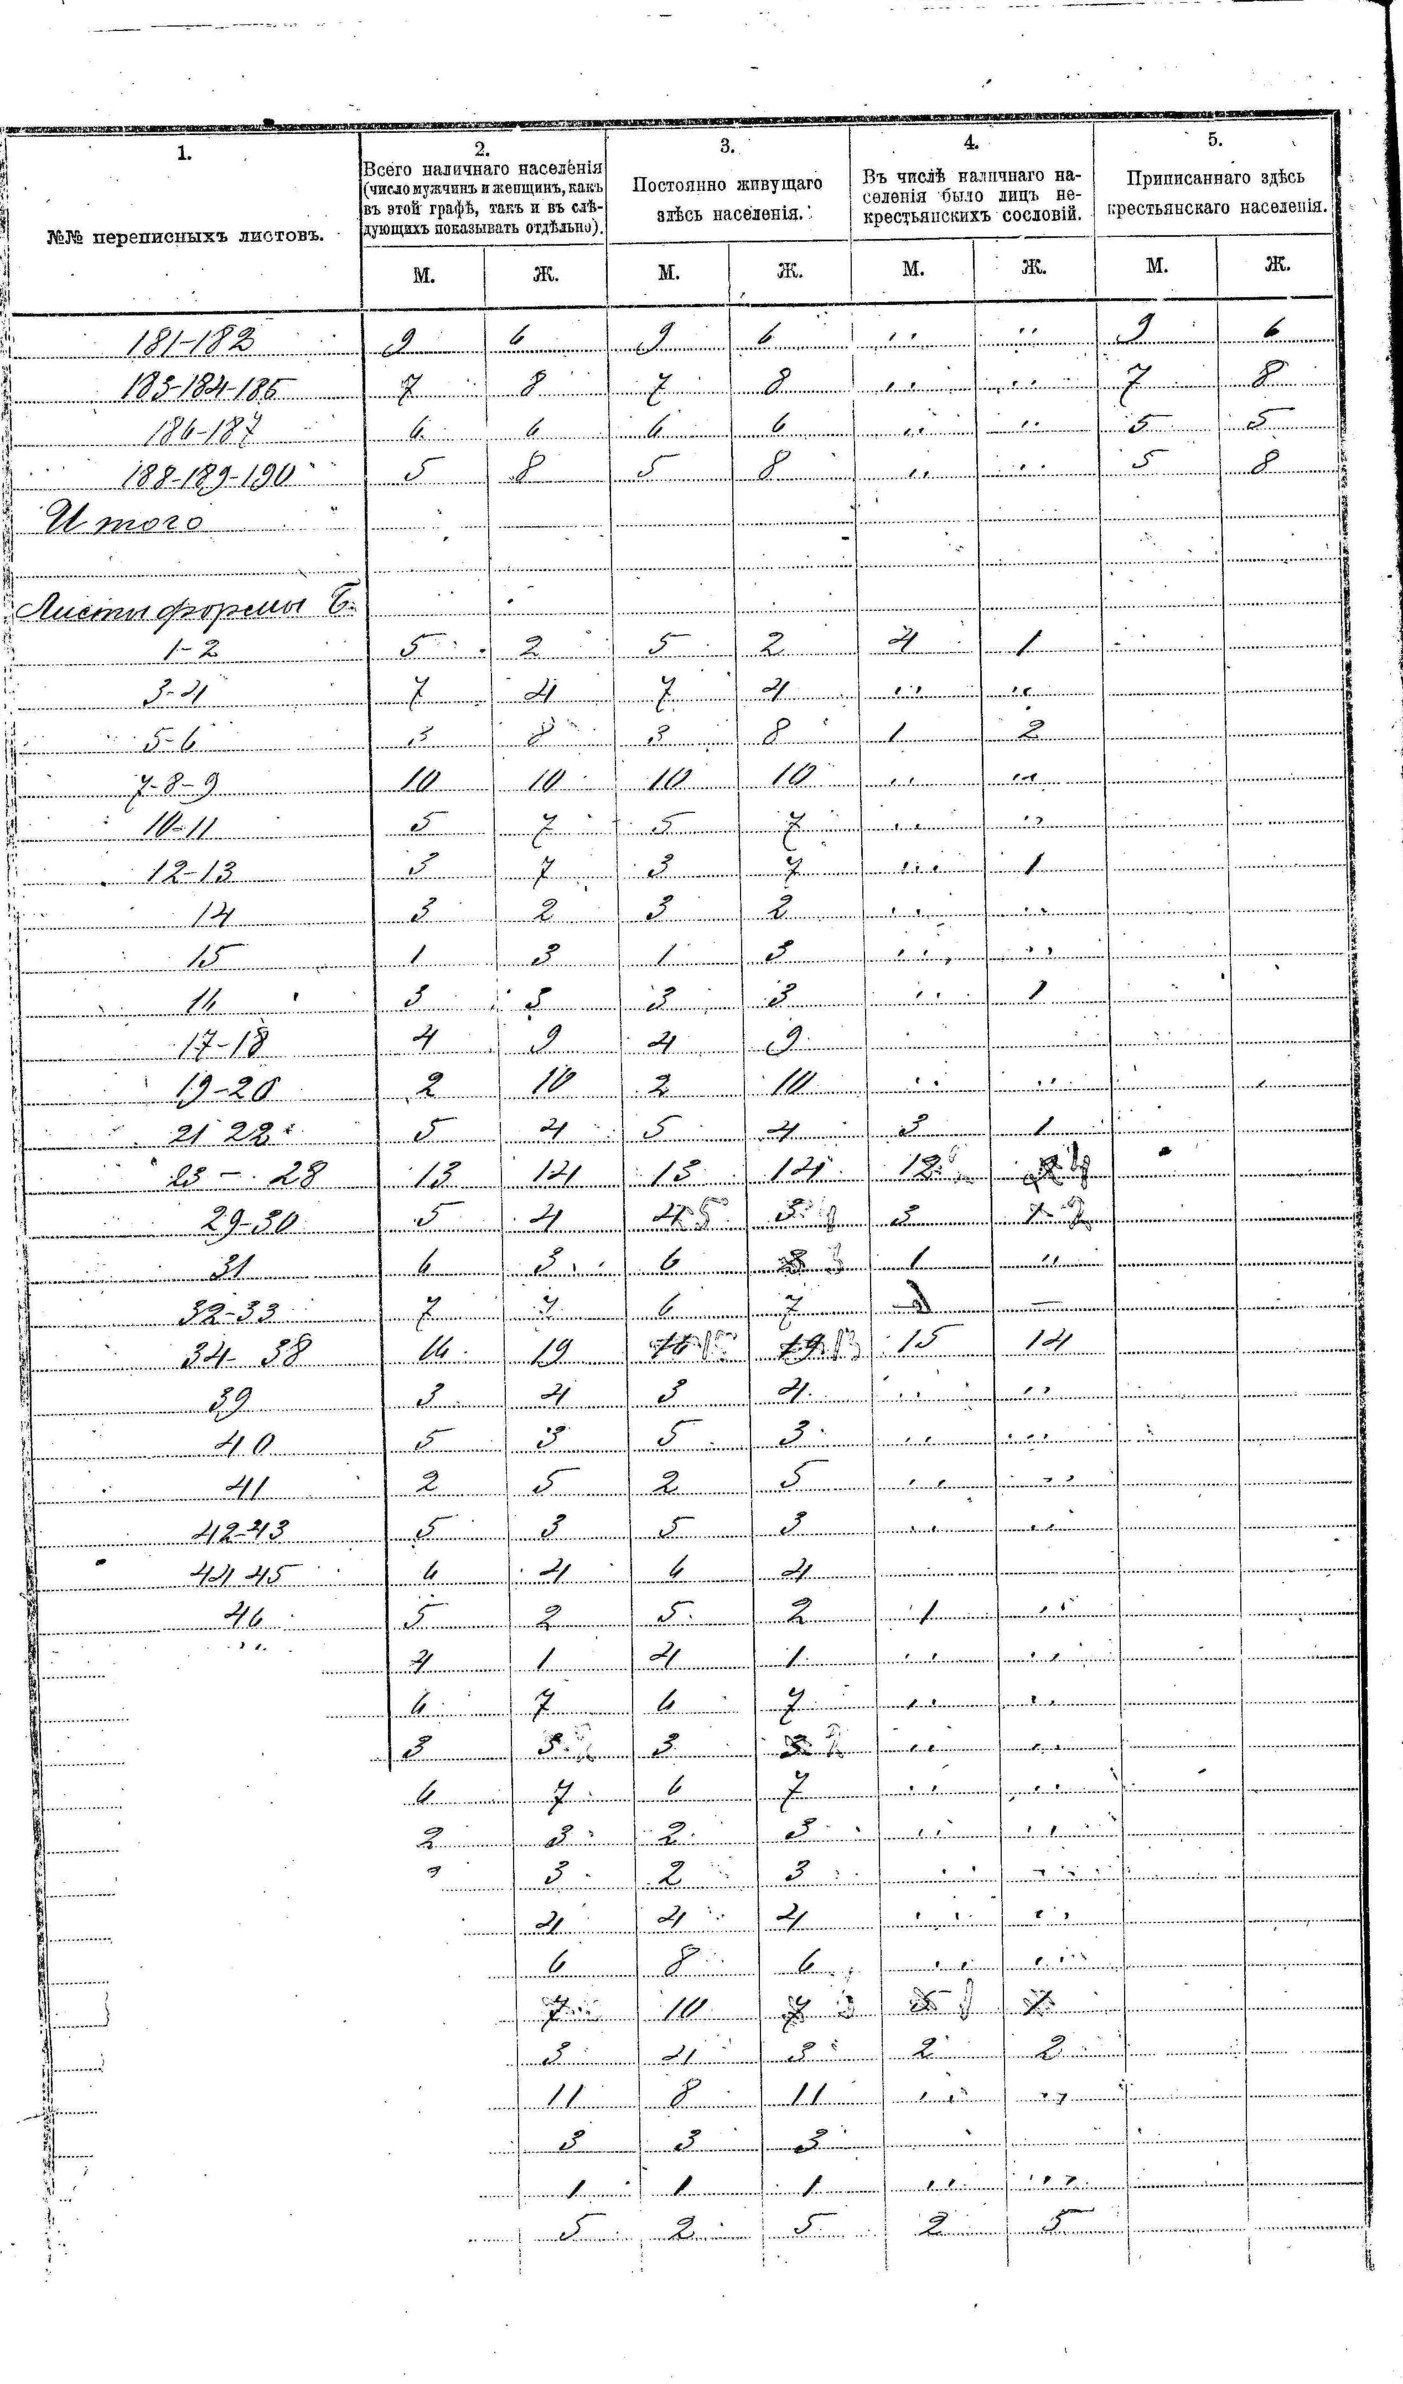 1. 2. 3. 4. 5.
№№ переписныхъ листовъ.
Всего наличнаго населенія
(число мужчинъ и женщинъ, какъ
въ этой графѣ, такъ и въ слѣ-
дующихъ показывать отдѣльно).
Постоянно живущаго
здѣсь населенія.
Въ числѣ наличнаго на-
селенія было лицъ не-
крестьянскихъ сословій.
Приписаннаго здѣсь
крестьянскаго населенія.
М. Ж. М. Ж. М. Ж. М. Ж.
181-182 9 6 9 6 " " 9 6
183-184-185 7 8 7 8 " " 7 8
186-187 6 6 6 6 " " 5 5
188-189-190 5 8 5 8 " " 5 8
Итого
Листы формы Б.
1-2 5 2 5 2 4 1
3-4 7 4 7 4 " "
5-6 3 8 3 8 1 2
7-8-9 10 10 10 10 " "
10-11 5 7 5 7 " "
12-13 3 7 3 7 " 1
14 3 2 3 2 " "
15 1 3 1 3 " "
16 3 3 3 3 " 1
17-18 4 9 4 9
19-20 2 10 2 10 " "
21 22 5 4 5 4 3 1
23 - 28 13 14 13 14 12
29-30 5 4 5 3
31 6 3 6 3 1 "
32-33 7 7 6 7 —
34-38 16 19 15 14
39 3 4 3 4 " "
40 5 3 5 3 " "
41 2 5 2 5 " "
42-43 5 3 5 3 " "
44 45 6 4 6 4
46 5 2 5 2 1 "
" 4 1 4 1 " "
6 7 6 7 " "
3 3 " "
6 7 6 7 " "
2 3 2 3 " "
3 2 3 " "
4 4 4 " "
6 8 6 " "
7 10
3 4 3 2 2
11 8 11 " "
3 3 3
1 1 1 " "
5 2 5 2 5